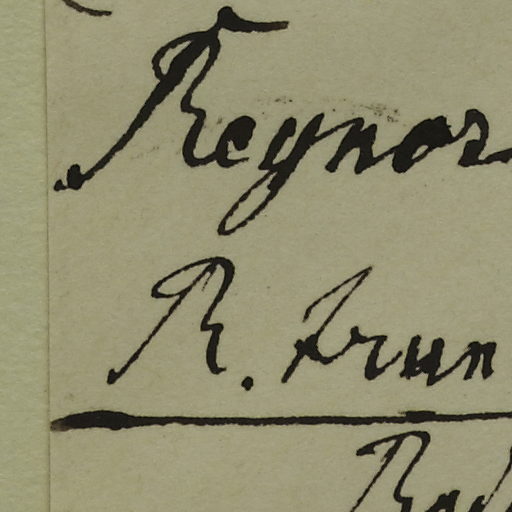 Reynor
R. trun
Rad